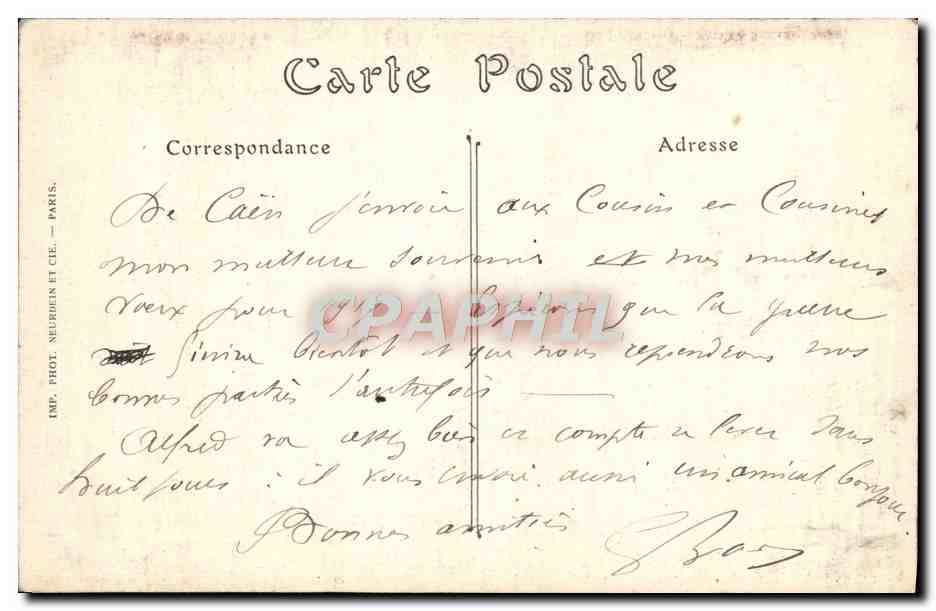 Carte Postale
Correspondance
Adresse
De Caën j'envoie aux Cousin et Cousines
mon meilleur souvenir et mes meilleurs
voeux pour espérons que la guerre
finira bientôt et que nous reprendrons nos
bonnes parties d'autrefois
Alfred va assez bien et compte se lever dans
huit jours : il vous envoie aussi un amical bonjour
Bonnes amitiés
IMP. PHOT. NEURDEIN ET CIE. — PARIS.
CPAPHIL